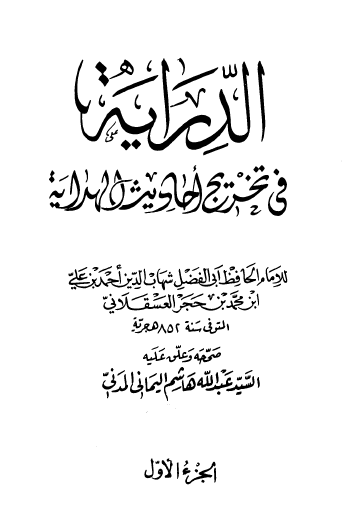 الدِّرَايَة
في تخريج أحاديث الهداية
للإمام الحافظ أبي الفضل شهاب الدين أحمد بن علي
ابن محمد بن حجر العسقلاني
المتوفى سنة ٨٥٢ هجرية
صححه وعلق عليه
السيد عبد الله هاشم اليماني المدني
الجزء الأول